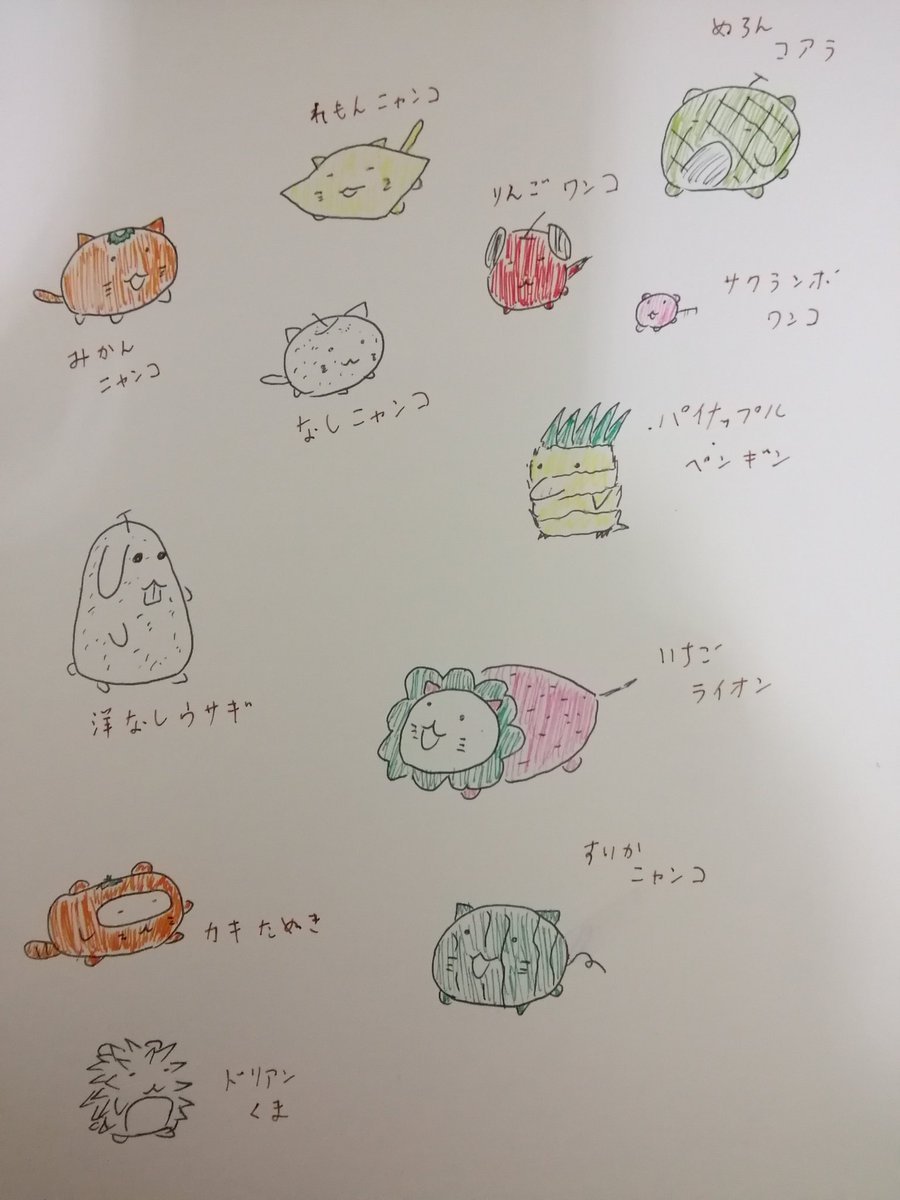 めろん
コアラ
れもんニャンコ
りんごワンコ
サクランボ
ワンコ
みかん
ニャンコ
なしニャンコ
パイナップル
ペンギン
洋なしウサギ
いちご
ライオン
すいか
ニャンコ
カキたぬき
ドリアン
くま